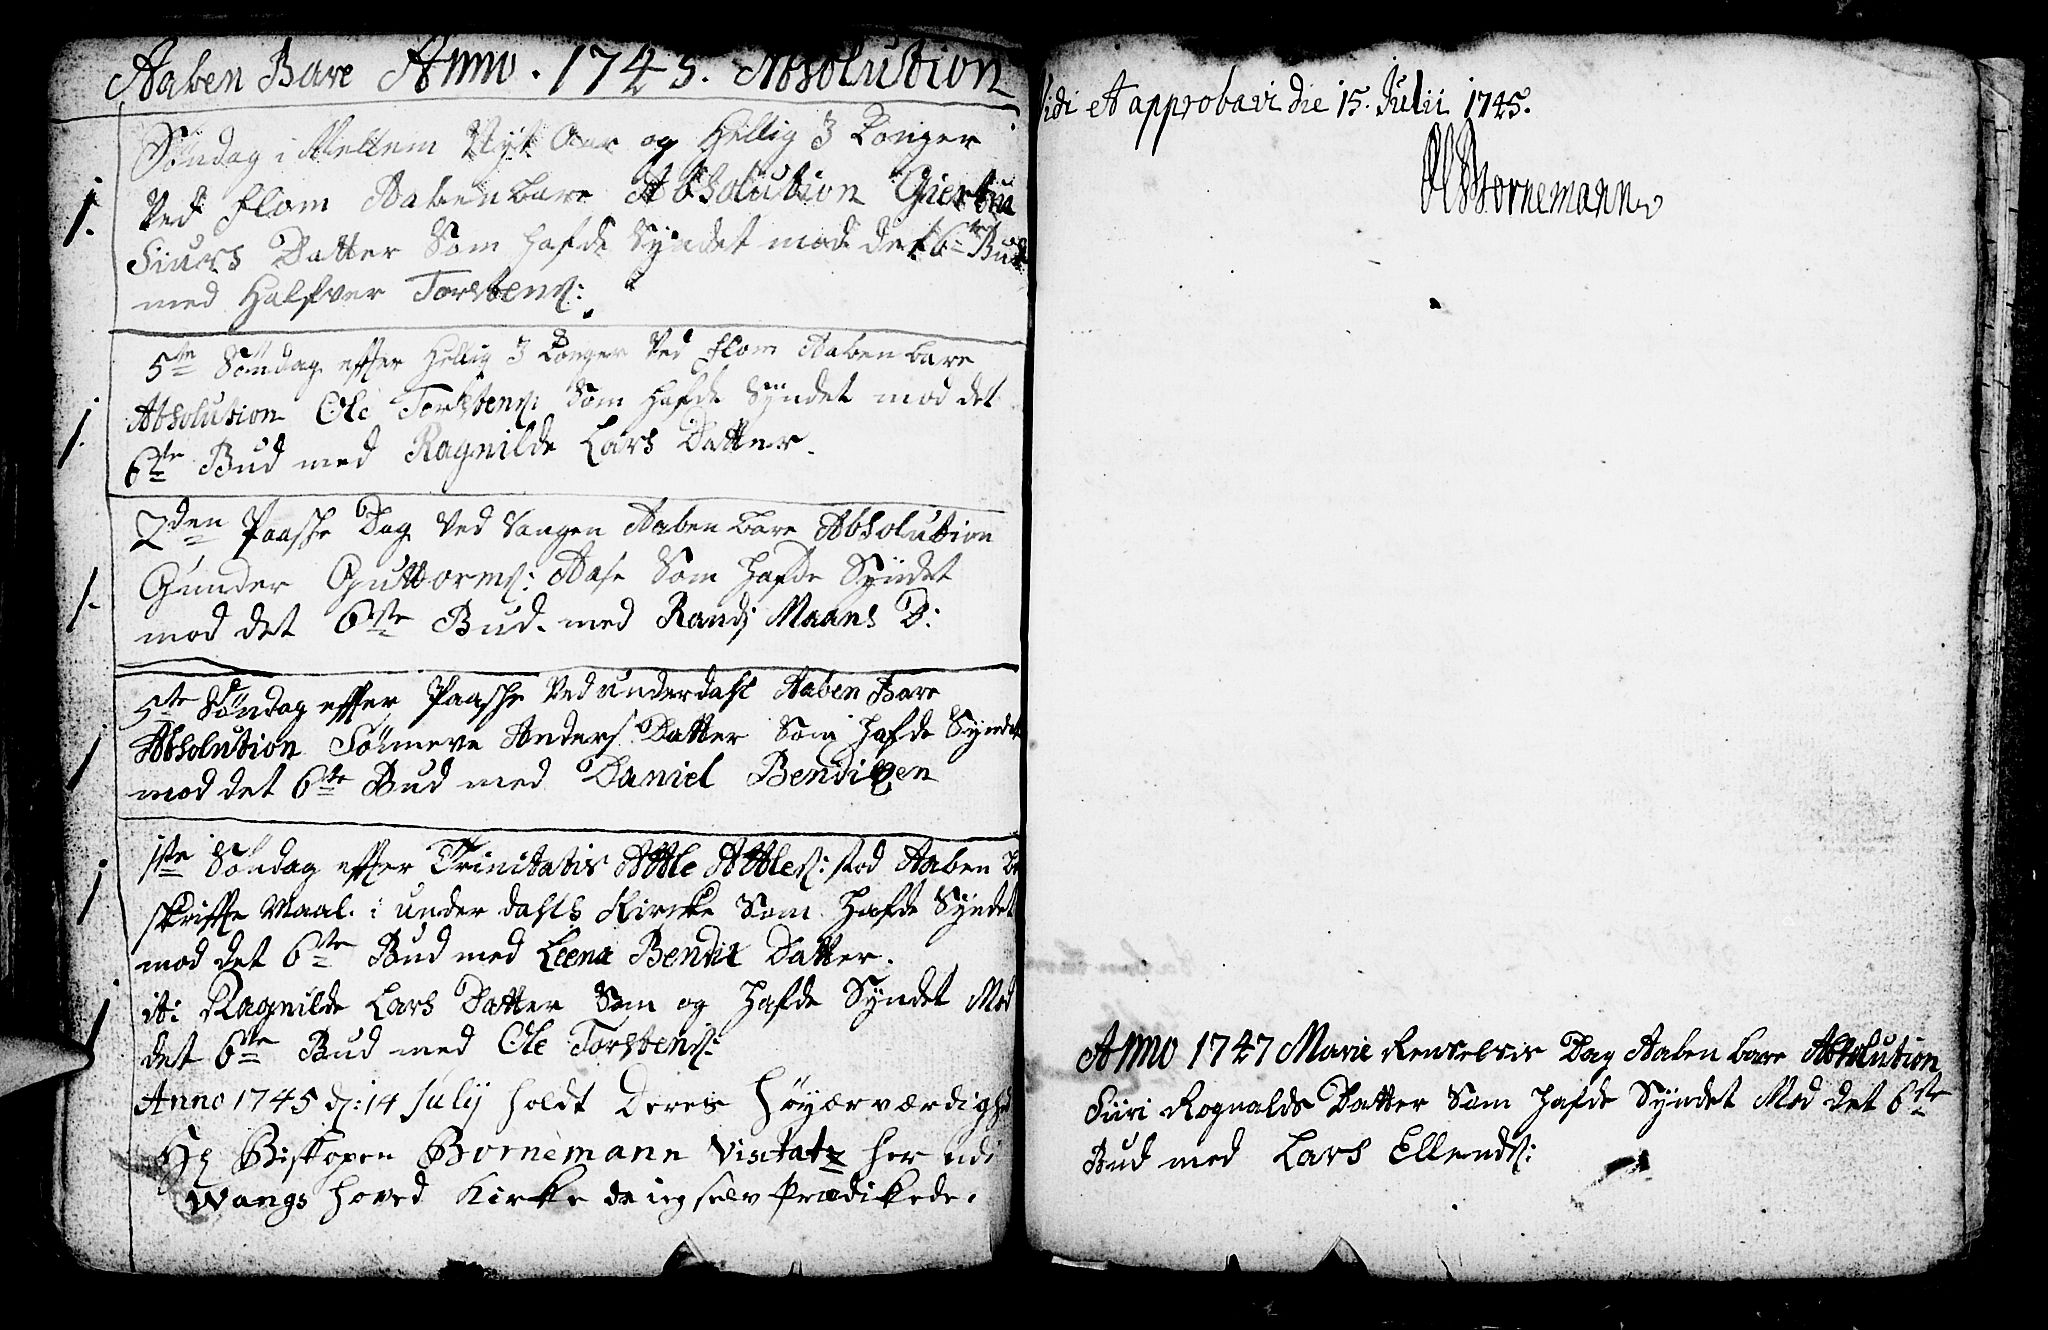 Aaben Bare Anno. 1745. Absolution
Söndag i Mellem Nyt Aar og Hellig 3 Konger
1. Ved Flom Aabenbare Absolution Giertru
Siurs Datter Som hafde Syndet mod det 6te Bud
med Halfver Torstens:
5te Söndag effter Hellig 3 Konger Ved Flom Aabenbare
1. Absolution Ole Torstens: Som hafde Syndet mod det
6te Bud med Ragnilde Lars Datter.
2den Paaske Dag Ved Vangen Aabenbare Absolution
1. Gunder Guttorms: Aase Som hafde Syndet
mod det 6te Bud. med Randj Maans D:
5te Söndag effter Paaske Ved underdahl Aaben Bare
1 Absolution Sönneve Anders Datter Som hafde Syndet
mod det 6te Bud med Daniel Bendixen
1ste Söndag effter Trinitatis Attle Attles: stod Aaben
1 skriffte Maal. i underdahls Kircke Som hafde Syndet
mod det 6te Bud med Leena Bendix Datter.
1 it: Ragnilde Lars Datter Som og hafde Syndet Mod
det 6te Bud med Ole Torstens:
Anno 1745 d: 14 Julij holdt Deres höyærværdighed
Hr Biskopen Bornemann Visitatz her udi
Wangs hoved Kirke da ieg selv Prædikede.
Vidi et approbavi die 15. Julii 1745.
Bornemann
Anno 1747 Mariæ Renselsis Dag Aabenbare Absolution
Siiri Rognalds Datter Som hafde Syndet Mod det 6te
Bud med Lars Ellends: